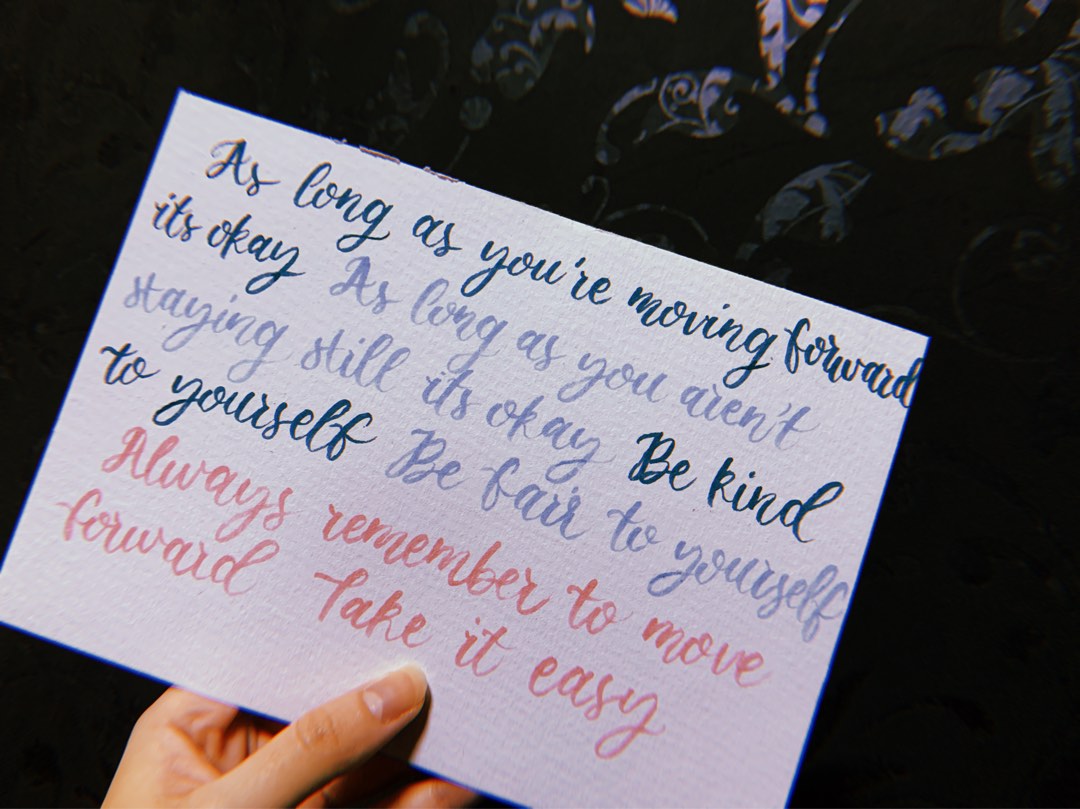 As long as you're moving forward
its okay As long as you aren't
staying still its okay Be kind
to yourself Be fair to yourself
Always remember to move
forward Take it easy